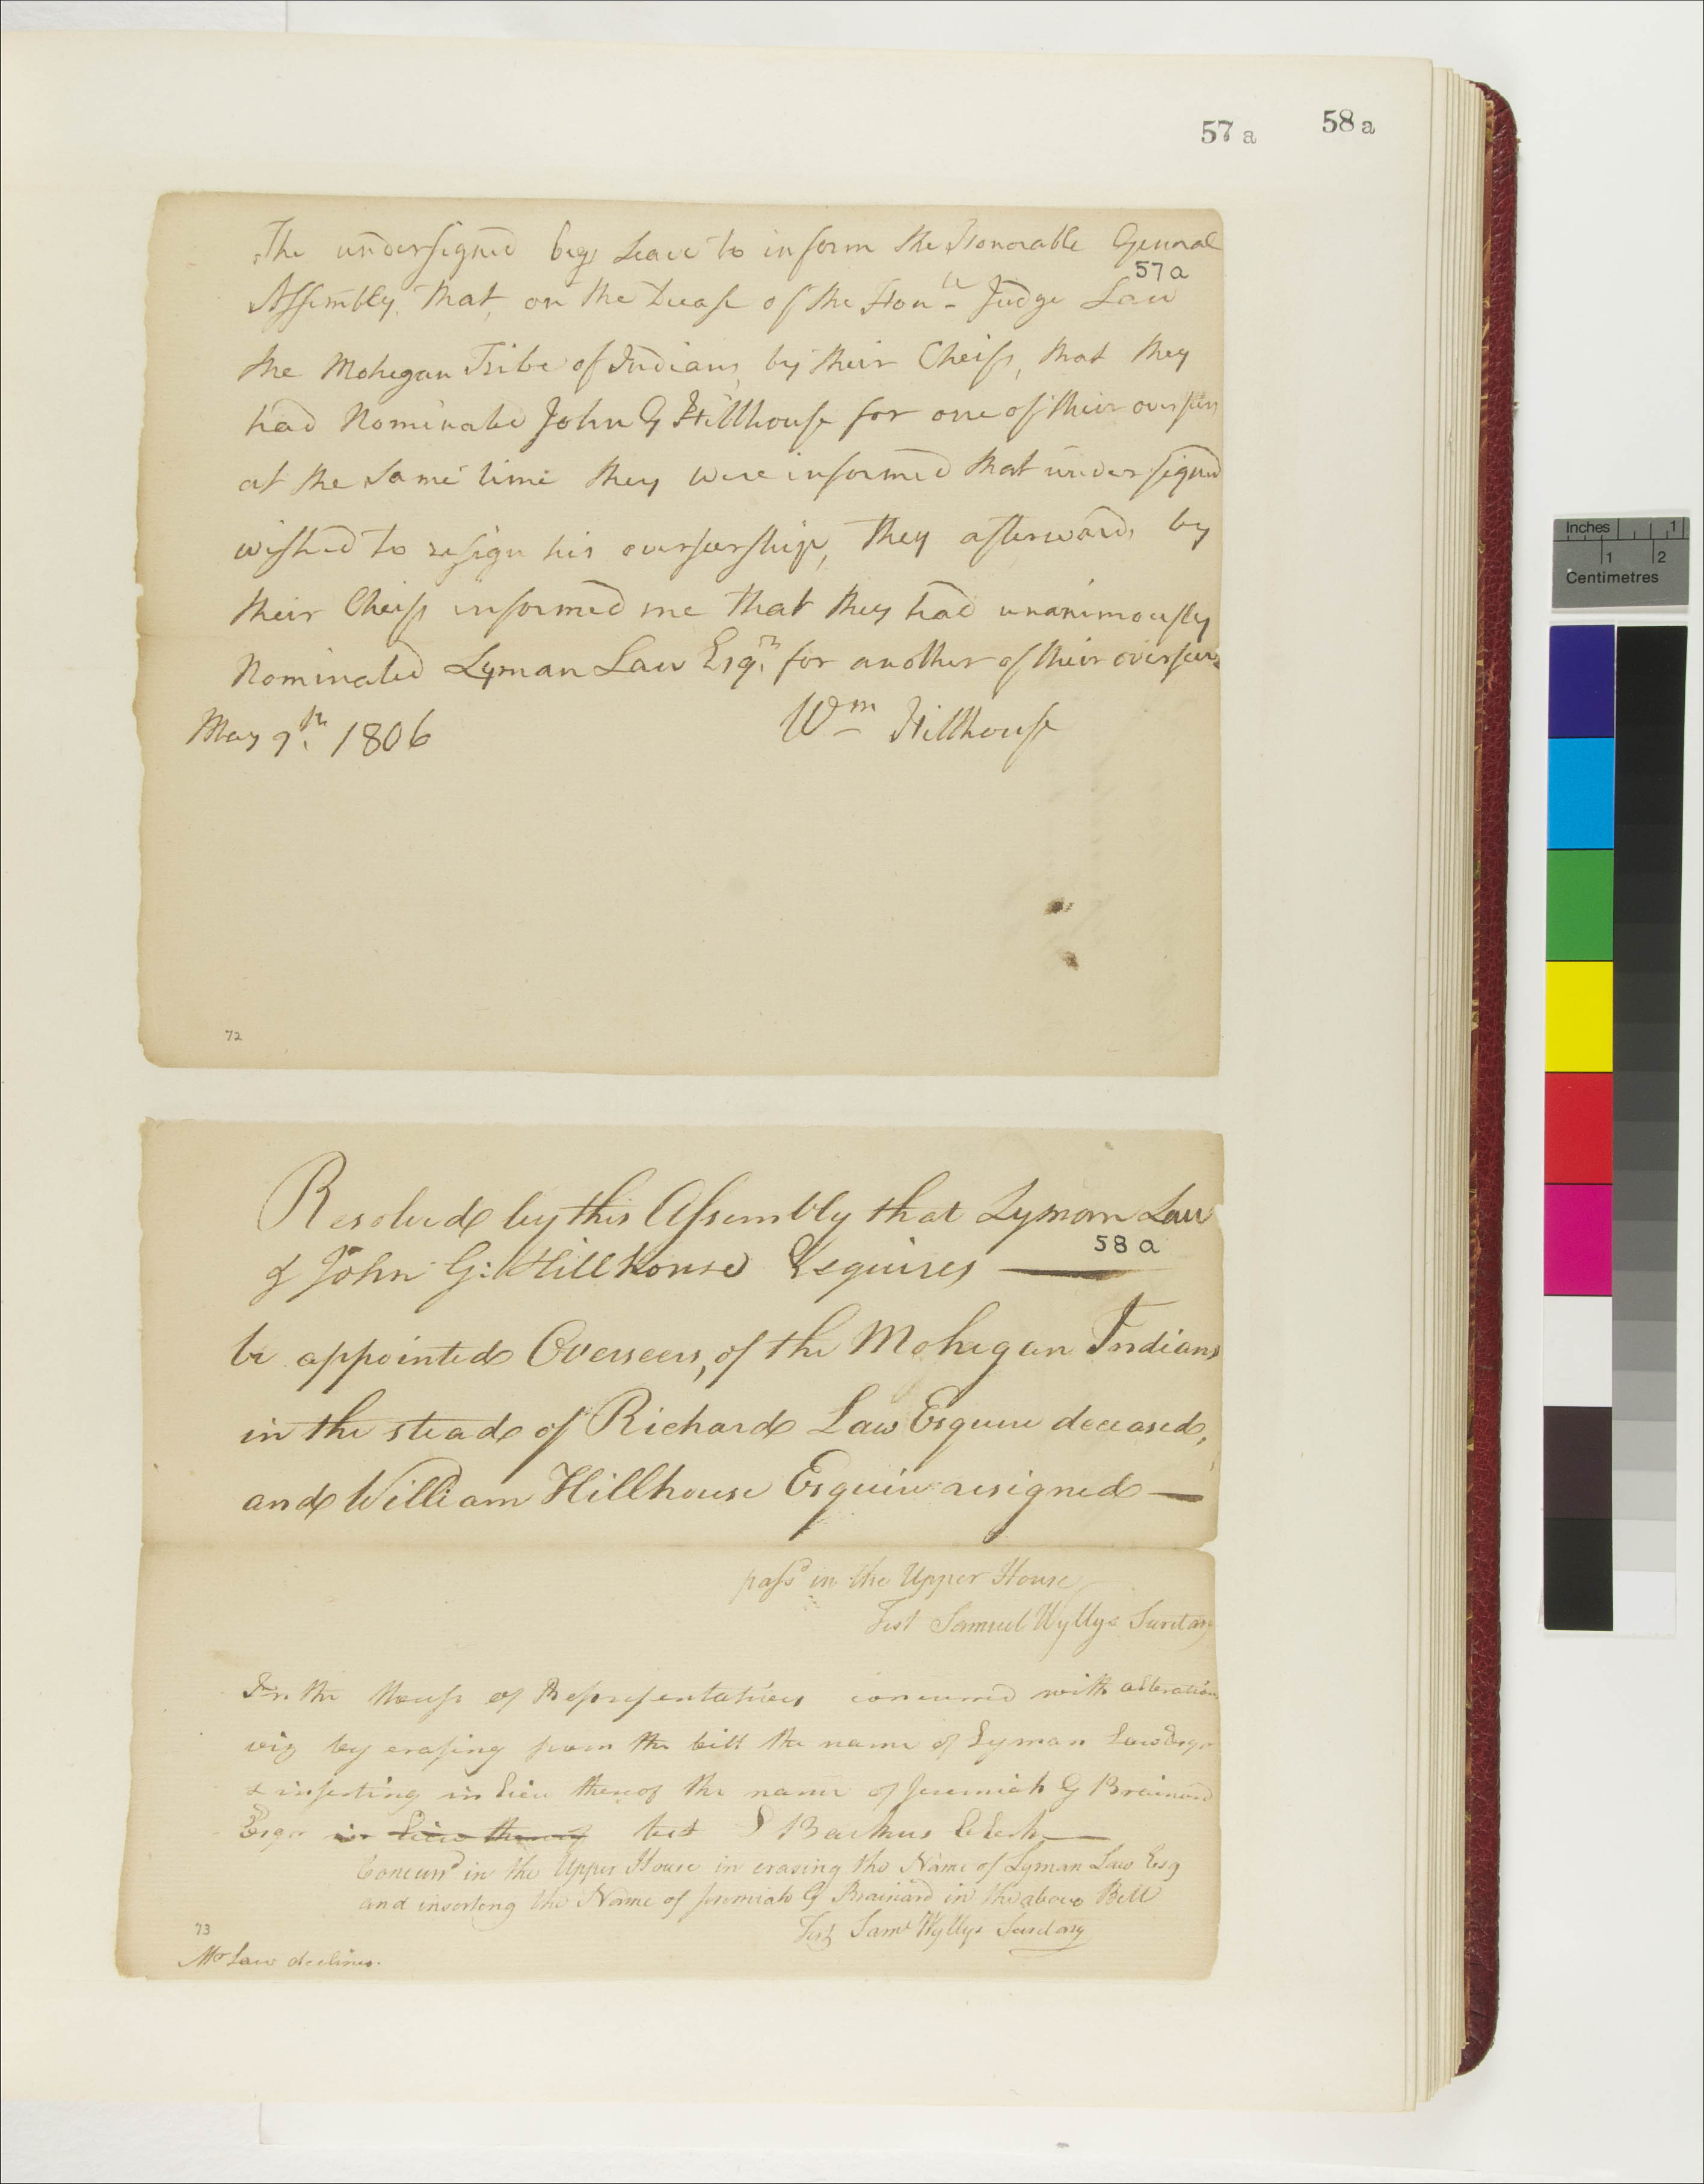 57 a 58 a
The undersigned begs leave to inform the Honorable General
57a
Assembly, that, on the Decease of the Honble Judge Law
the Mohegan Tribe of Indians, by their Cheifs, that they
had Nominated John G Hillhouse for one of their overseers
at the same time they were informed that undersigned
wished to resign his overseership, They afterwards by
their Cheifs informed me that they had unanimously
Nominated Lyman Law Esqr. for another of their overseers
May 9th. 1806 Wm Hillhouse
72
Resolved by this Assembly that Lyman Law
58a
& John G: Hillhouse Esquires —
be appointed Overseers, of the Mohegan Indians
in the stead of Richard Law Esquire deceased,
and William Hillhouse Esquire resigned —
passd in the Upper House
Test Samuel Wyllys Secretary
In the House of Representatives concurred with alteration
viz by erasing from the bill the name of Lyman Law Esqr
& inserting in lieu thereof the name of Jeremiah G Brainard
Esqr in lieu thereof test Backus Clerk
Concurrd in the Upper House in erasing the Name of Lyman Law Esq
and inserting the Name of Jeremiah G Brainard in the above Bill
Test Saml Wyllys Secretary
73
Mr Law declines.
Inches 1
1 2
Centimetres